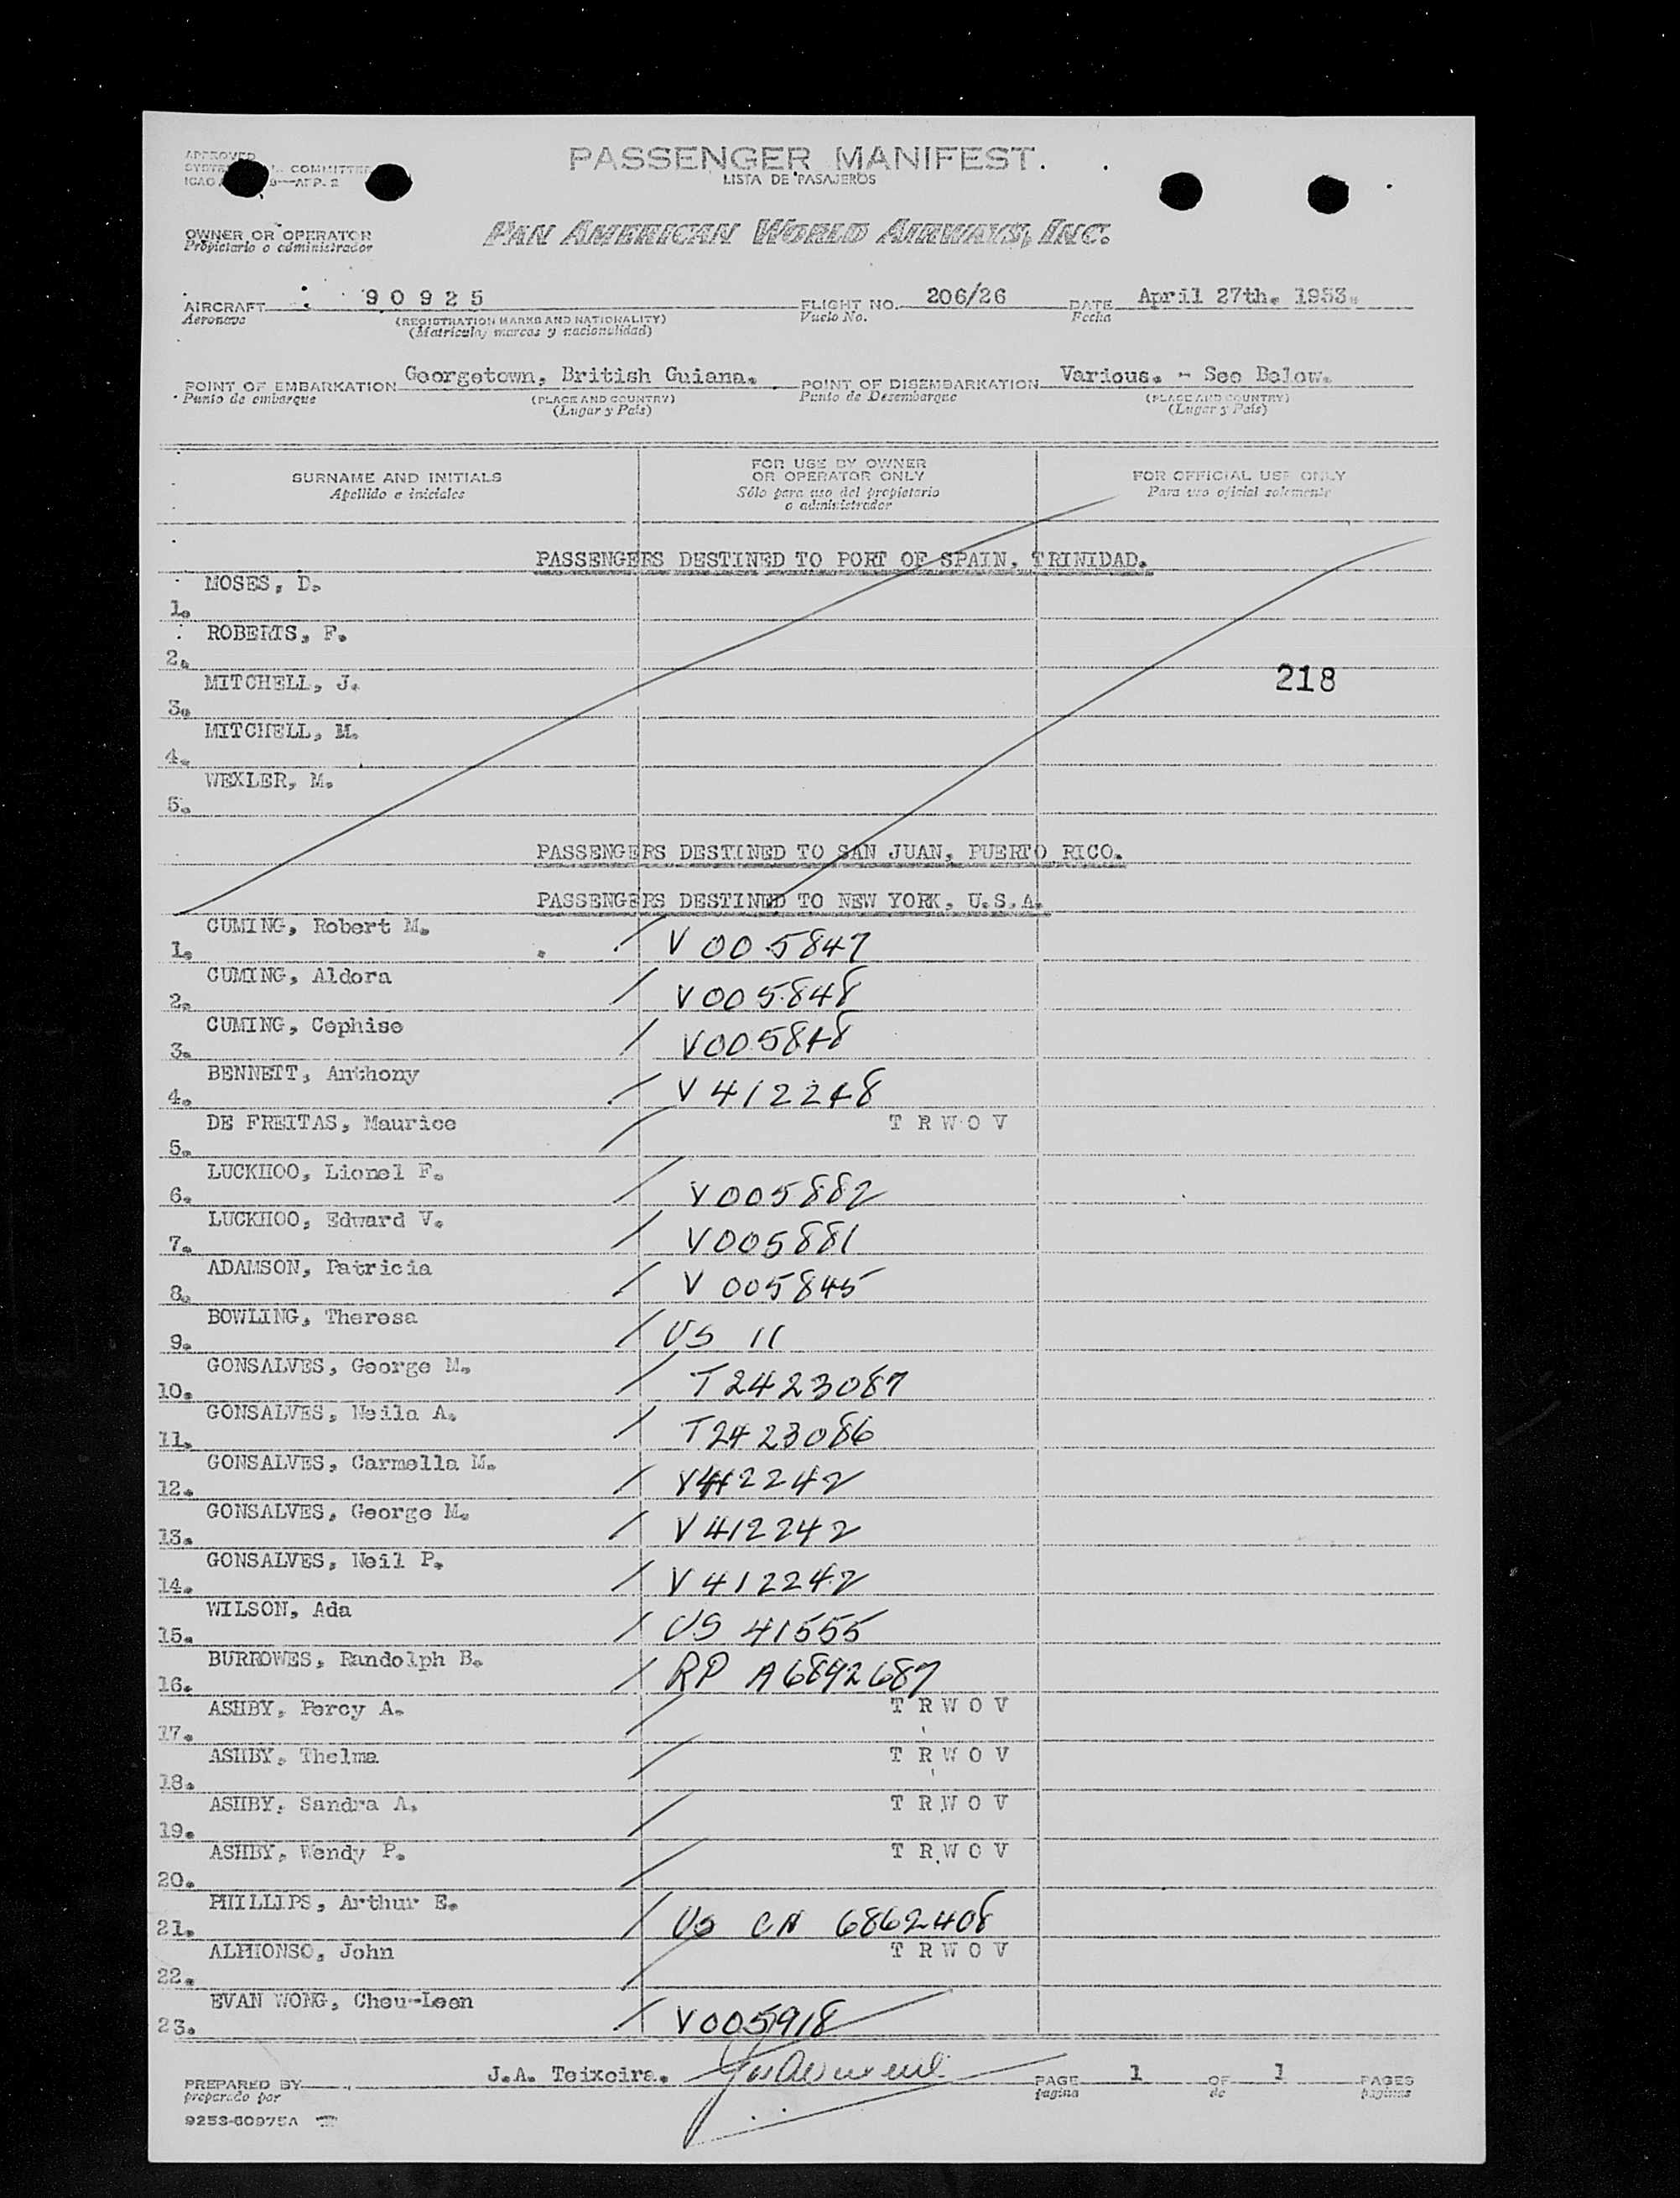 APPROVED
COMMITTEE
ICAO
PASSENGER MANIFEST.
LISTA DE PASAJEROS
OWNER OR OPERATOR
Propietario o administrador
PAN AMERICAN WORLD AIRWAYS, INC.
AIRCRAFT 90925 FLIGHT NO. 206/26 DATE April 27th. 1953.
Aeronave (REGISTRATION MARKS AND NATIONALITY) Vuelo No. Fecha
(Matrícula, marcas y nacionalidad)
POINT OF EMBARKATION Georgetown, British Guiana. POINT OF DISEMBARKATION Various. - See Below.
Punto de embarque (PLACE AND COUNTRY) Punto de Desembarque (PLACE AND COUNTRY)
(Lugar y País) (Lugar y País)
SURNAME AND INITIALS FOR USE BY OWNER OR OPERATOR ONLY FOR OFFICIAL USE ONLY
Apellido e iniciales Sólo para uso del propietario o administrador Para uso oficial solamente
PASSENGERS DESTINED TO PORT OF SPAIN, TRINIDAD.
1. MOSES, D.
2. ROBERTS, F.
3. MITCHELL, J. 218
4. MITCHELL, M.
5. WEXLER, M.
PASSENGERS DESTINED TO SAN JUAN, PUERTO RICO.
PASSENGERS DESTINED TO NEW YORK, U.S.A.
1. CUMING, Robert M. / V 005847
2. CUMING, Aldora / V005848
3. CUMING, Cephise / V005848
4. BENNETT, Anthony / V412248
5. DE FREITAS, Maurice / T R W O V
6. LUCKHOO, Lionel F. / V005882
7. LUCKHOO, Edward V. / V005881
8. ADAMSON, Patricia / V 005845
9. BOWLING, Theresa / US 11
10. GONSALVES, George M. / T2423087
11. GONSALVES, Neila A. / T2423086
12. GONSALVES, Carmella M. / V412242
13. GONSALVES, George M. / V412242
14. GONSALVES, Neil P. / V412242
15. WILSON, Ada / US 41555
16. BURROWES, Randolph B. / RP A6892687
17. ASHBY, Percy A. / T R W O V
18. ASHBY, Thelma / T R W O V
19. ASHBY, Sandra A. / T R W O V
20. ASHBY, Wendy P. / T R W O V
21. PHILLIPS, Arthur E. / US CN 6862408
22. ALPHONSO, John / T R W O V
23. EVAN WONG, Cheu-Leen / V005918
PREPARED BY J.A. Teixeira. PAGE 1 OF 1 PAGES
preparado por página de páginas
9253-60975A